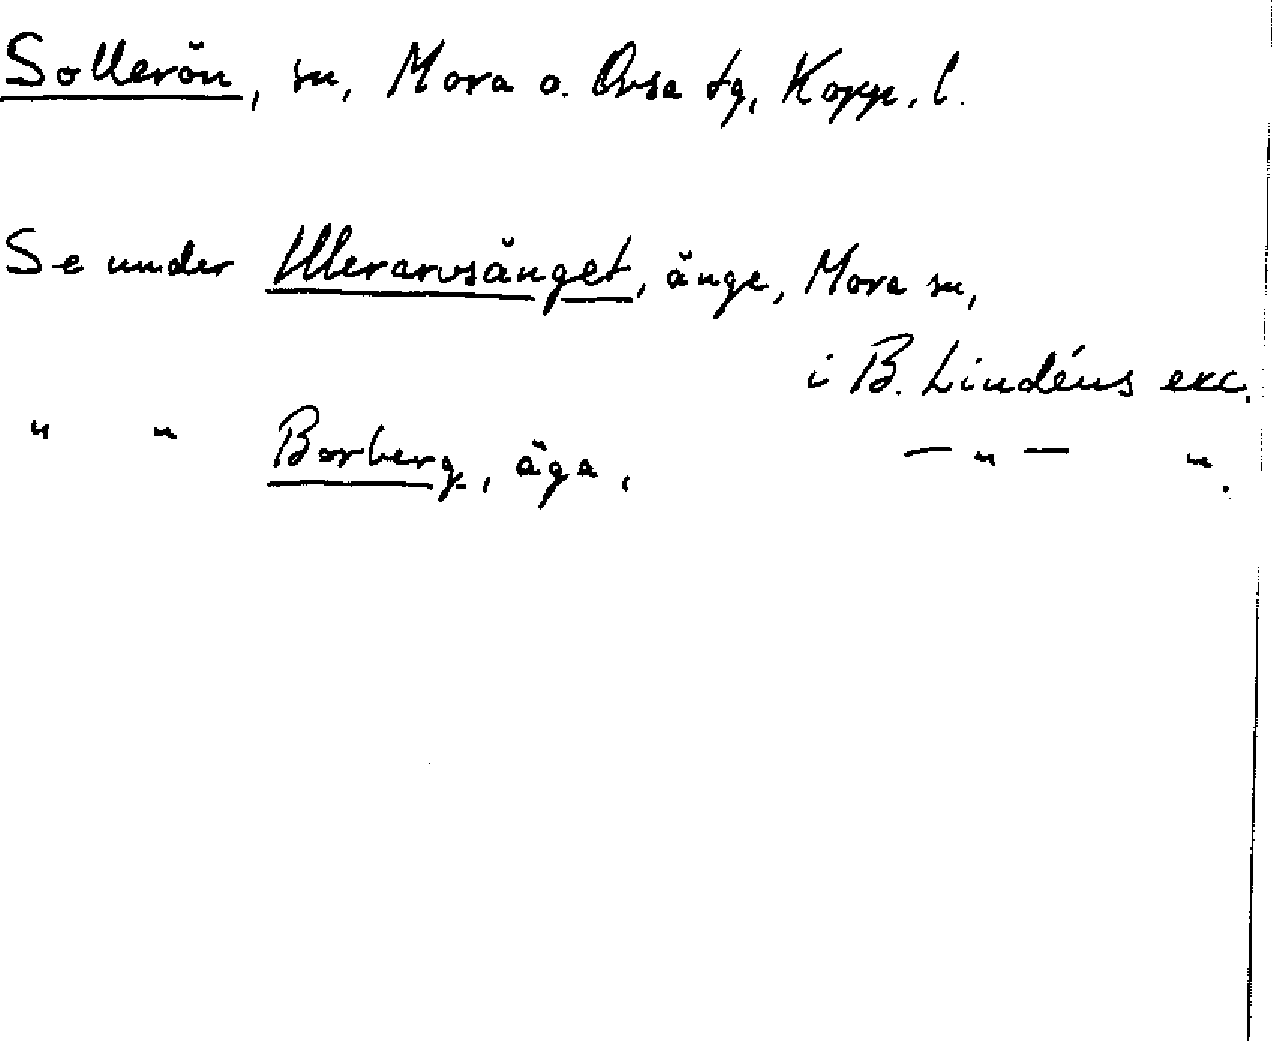 Sollerön, sn, Mora o. Orsa tg, Kopp. l.
Se under Ullerarvsänget, änge, Mora sn,
i B. Lindéns exc.
" " Borberg, äga, — " — ".